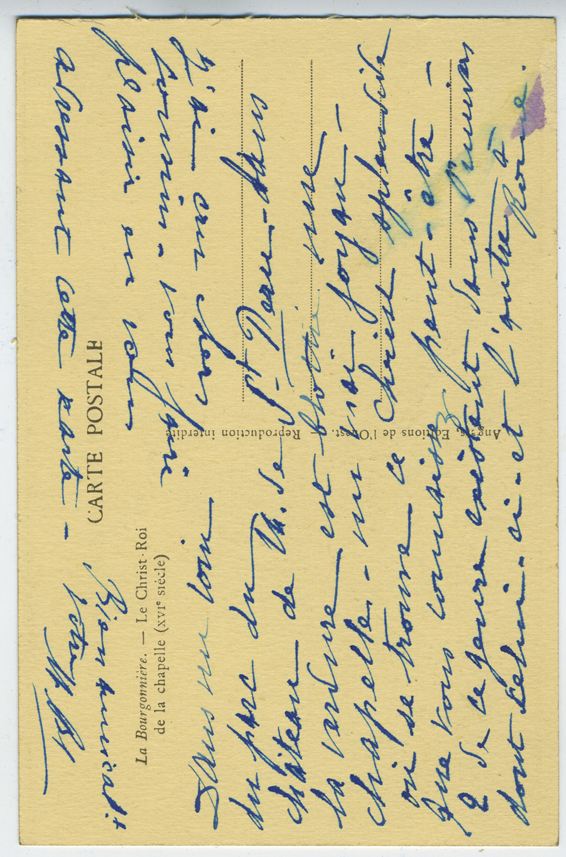 CARTE POSTALE
La Bourgonnière. — Le Christ-Roi
de la chapelle (XVIᵉ siècle)
Angers, Editions de l'Ouest. Reproduction interdite
Dans un coin
du parc du
château de M. de St Pern - dans
la verdure est blottie une
chapelle - un vrai joyau -
où se trouve ce Christ splendide
que vous connaissez peut-être -
2 de ce genre existent dans l'univers
dont celui-ci - et l'autre à Rome.
J'ai cru chers
cousins - vous faire
plaisir en vous
adressant cette carte -
Bien amicalt
Votre